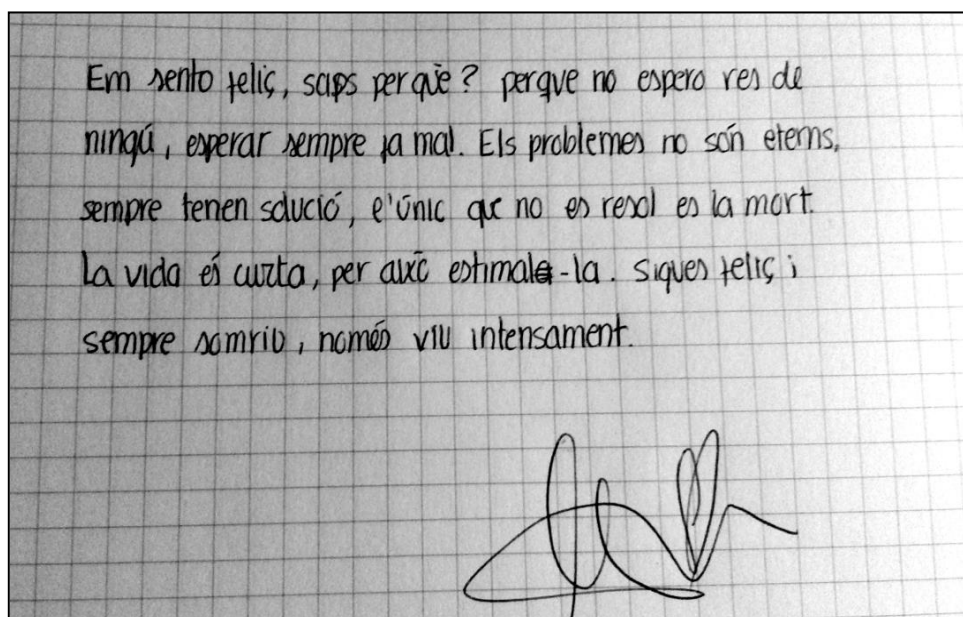 Em sento feliç, saps per què? perque no espero res de
ningú, esperar sempre fa mal. Els problemes no són eterns,
sempre tenen solució, e'únic que no es resol es la mort.
La vida és curta, per això estimala-la. Sigues feliç i
sempre somriu, només viu intensament.